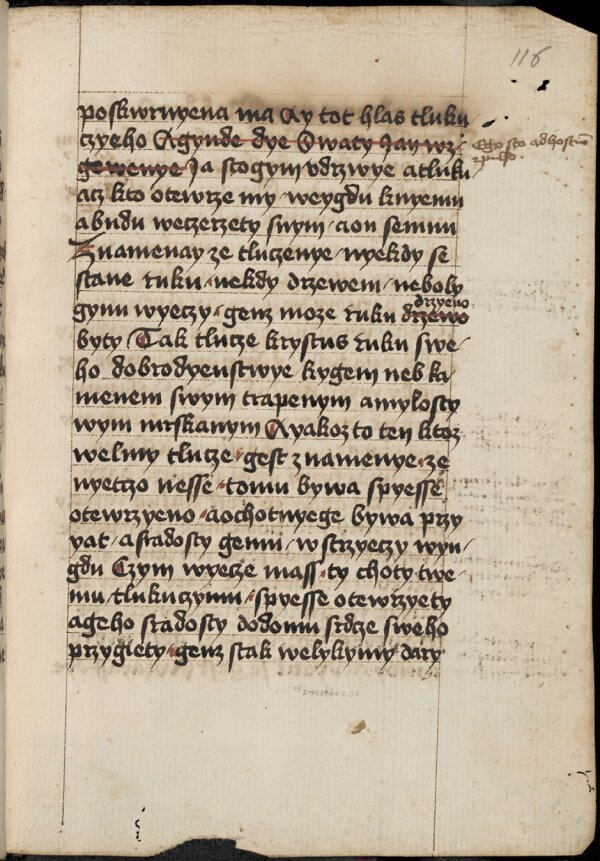 116
poskwrnyena ma Ay tot hlas tluku
czyeho A gynde dye Swaty Jan wz
gewenye Ja stogym vdrzwye atluku
Ego sto ad hostiu
zpulso
acz kto otewrze my weygdu knyemu
abudu weczerzety snym aon semnu
Znamenay ze tluczenye nyekdy se
stane ruku nekdy drzewem neboly
gynu wyeczy genz moze ruku drzewo
drzyeno
byty Tak tlucze krystus ruku swe
ho dobrodyenstwye kygem neb ka
menem swym trapenym amylosty
wym mrskanym Ayakoz to ten ktoz
welmy tlucze gest znamenye ze
nyeczo nesse tomu bywa spyesse
otewrzyeno aochotnyege bywa przy
yat aradosty genu wstrzyeczy wyn
gdu Czym wyecze mass ty choty twe
mu tlukuczymu spyesse otewrzyety
ageho sradosty dodomu srdcze sweho
przygiety genz stak welykymy dary